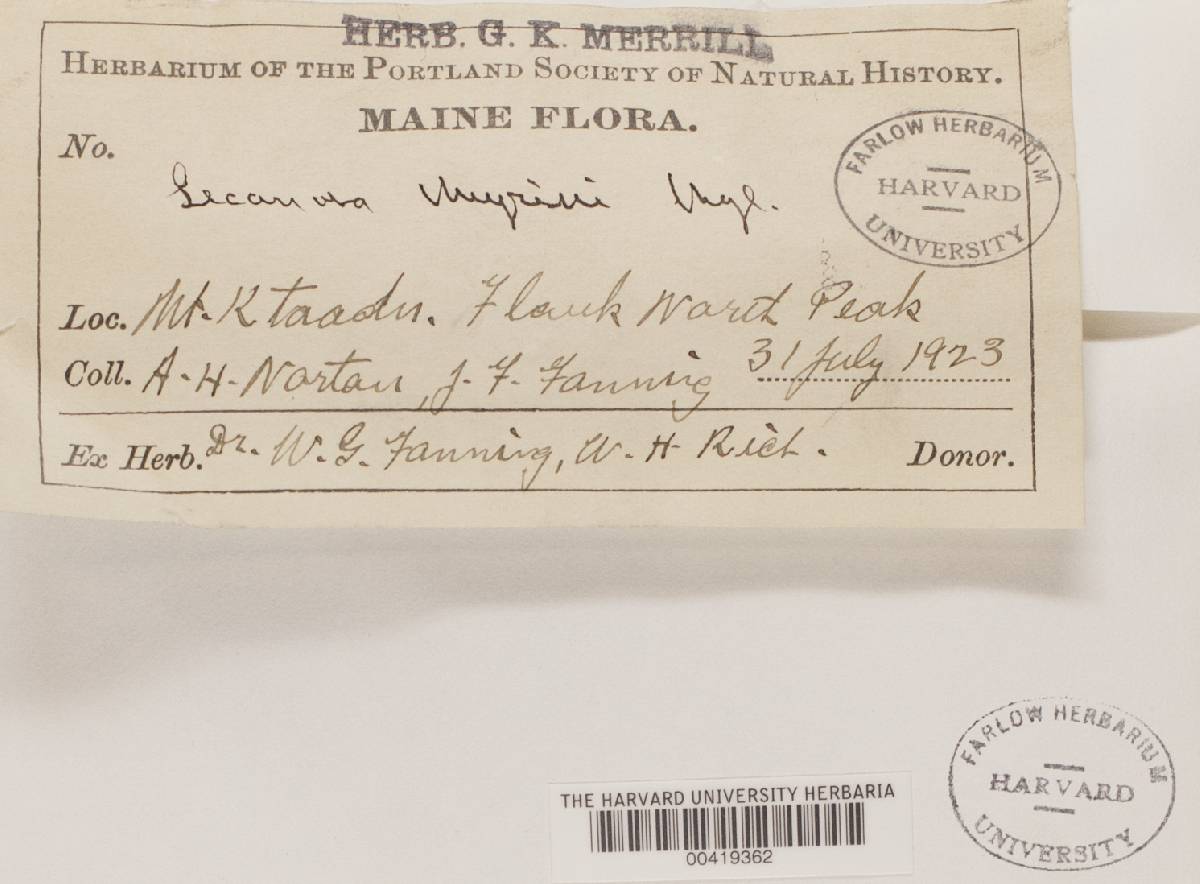 HERB. G. K. MERRILL
HERBARIUM OF THE PORTLAND SOCIETY OF NATURAL HISTORY.
MAINE FLORA.
No.
Lecanora Myrini Nyl.
FARLOW HERBARIUM
HARVARD
UNIVERSITY
Loc. Mt. Ktaadn. Flank North Peak
Coll. A. H. Norton, J. F. Fanning 31 July 1923
Ex Herb. Dr. W. G. Fanning, W. H Rich. Donor.
FARLOW HERBARIUM
HARVARD
UNIVERSITY
THE HARVARD UNIVERSITY HERBARIA
00419362